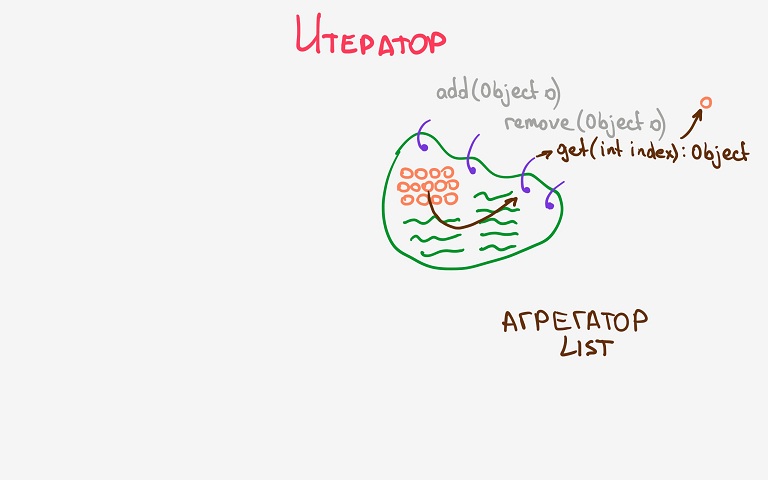 Итератор
add(Object o)
remove(Object o)
get(int index): Object
АГРЕГАТОР
LIST